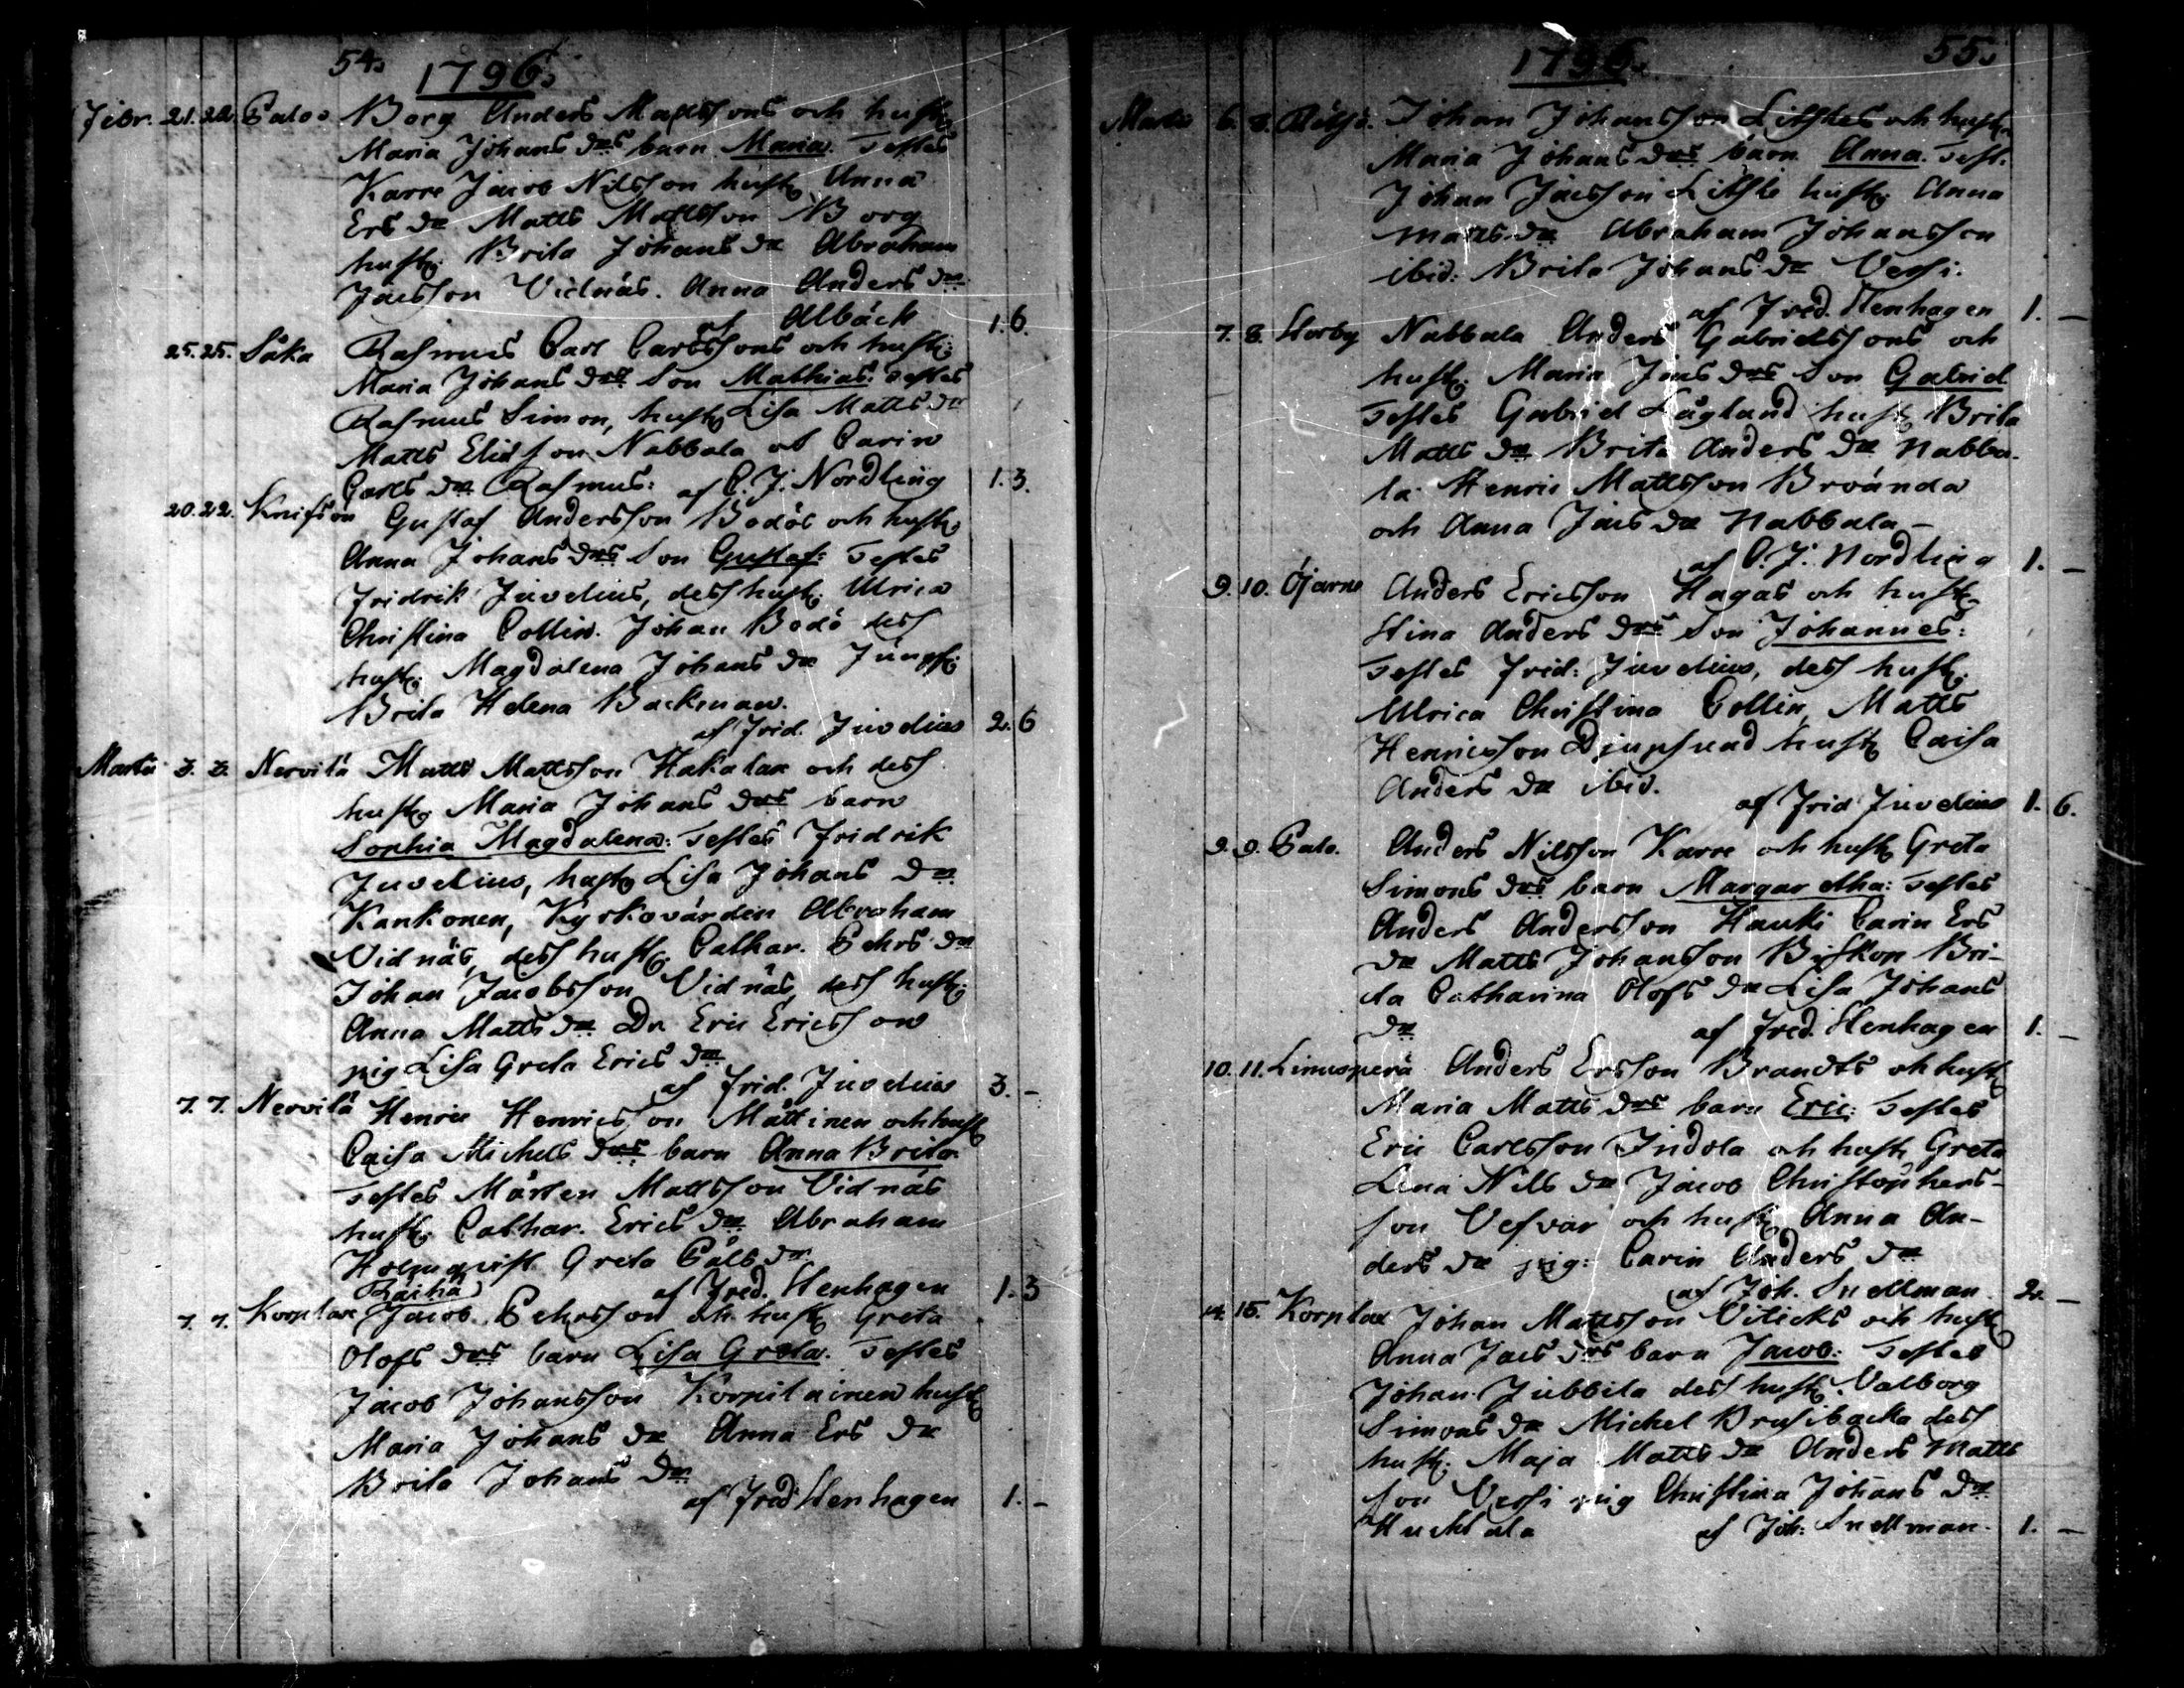 54.
1796.
Febr. 21. 22. Palo. Borg Anders Mattssons och hust.
Maria Johans drs barn Maria. Testes
Karre Jacob Nilsson hust. Anna
Ers dr Matts Mattsson Borg
hust. Brita Johans dr Abraham
Jacsson Vidnäs. Anna Anders dr
Albäck 1. 6.
25. 25. Såka Rasmus Carl Carlssons och hust:
Maria Johans drs Son Mathias: Testes
Rasmus Simon, hust. Lisa Matts dr
Matts Eliasson Nabbala ob Carin
Carls dr Rasmus: af C. J. Nordling 1. 3.
20. 22. Knifsön Gustaf Andersson Bodös och hust:
Anna Johans drs Son Gustaf: Testes
Fridrik Juvelius, dess hust. Ulrica
Christina Collin. Johan Bodö dess
hust. Magdalena Johans dr Jungf.
Brita Helena Backman.
af Frid. Juvelius 2. 6
Martii 3. 3. Nervilä Matts Mattsson Hakalax och dess
hust. Maria Johans drs barn
Sophia Magdalena: Testes Fridrik
Juvelius, hust. Lisa Johans dr
Kankonen, Kyrkovärden Abraham
Vidnäs, dess hust. Cathar. Pehrs dr
Johan Jacobsson Vidnäs, dess hust.
Anna Matts dr Dr. Eric Ericsson
pig Lisa Greta Erics dr
af Frid. Juvelius 3. -
7. 7. Nervilä Henric Henricsson Mattinen och hust
Caisa Michels drs barn Anna Brita
Testes Mårten Mattsson Vidnäs
hust. Cathar. Erics dr Abraham
Holmqvist Greta Påls dr
af Fred. Stenhagen 1. 3
Räihä
7. 7. Korplax Jacob Pehrsson och hust. Greta
Olofs drs barn Lisa Greta. Testes
Jacob Johansson Korpilainen hust
Maria Johans dr Anna Ers dr
Brita Johans dr
af Fred Stenhagen 1. -
1796. 55.
Martii 6. 8. Johan Johansson Litstes och hust.
Maria Johans drs barn Anna. Test.
Johan Jacsson Litste hust. Anna
Matts dr Abraham Johansson
ibid: Brita Johans dr Vessi.
af Fred. Stenhagen 1. -
7. 8. Storby Nabbala Anders Gabrielssons och
hust. Maria Jacs drs Son Gabriel
Testes Gabriel Lågland hust. Brita
Matts dr Brita Anders dr Nabba-
la Henric Mattsson Broända
och Anna Jacs dr Nabbala -
af C. J. Nordling 1. -
9. 10. Öjarne Anders Ericsson Hagas och hust.
Stina Anders drs Son Johannes:
Testes Frid: Juvelius, dess hust.
Ulrica Christina Collin, Matts
Henricsson Djupsund hust. Caisa
Anders dr ibid.
af Frid Juvelius 1. 6.
9. 9. Palo. Anders Nilsson Karre och hust. Greta
Simons drs barn Margaretha: Testes
Anders Andersson Hauki Carin Ers
dr Matts Johansson Biskop Bri-
ta Catharina Olofs dr Lisa Johans
dr af Fred. Stenhagen 1. -
10. 11. Linusperä Anders Ersson Brandts och hust
Maria Matts drs barn Eric: Testes
Eric Carlsson Indola och hust. Greta
Lena Nils dr Jacob Christophers-
son Vesvar och hust. Anna An-
ders dr pig: Carin Anders dr
af Joh. Snellman. 2. -
14. 15. Korplax Johan Mattsson Vilicks och hust
Anna Jacs drs barn Jacob: Testes
Johan Jubbila dess hust. Valborg
Simons dr Michel Brusibacka dess
hust. Maja Matts dr Anders Matts
son Vessi pig Christina Johans dr
Huchtala af Joh: Snellman. 1. -